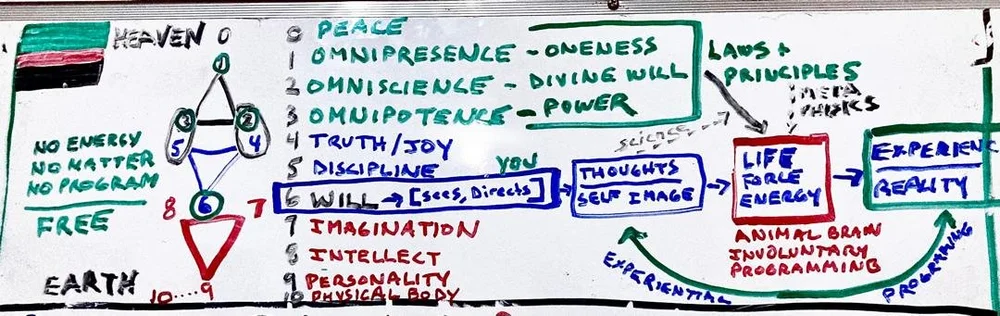 HEAVEN 0
1
3 2
5 4
NO ENERGY
NO MATTER
NO PROGRAM
FREE
6
8 7
EARTH
10....9
0 PEACE
1 OMNIPRESENCE - ONENESS
2 OMNISCIENCE - DIVINE WILL
3 OMNIPOTENCE - POWER
4 TRUTH/JOY
5 DISCIPLINE
YOU
6 WILL → [sees, Directs]
7 IMAGINATION
8 INTELLECT
9 PERSONALITY
10 PHYSICAL BODY
THOUGHTS
SELF IMAGE
science
LAWS +
PRINCIPLES
META
PHISICS
LIFE
FORCE
ENERGY
ANIMAL BRAIN
INVOLUNTARY
PROGRAMMING
EXPERIENC
REALITY
EXPERIENTIAL
PROGRAMING